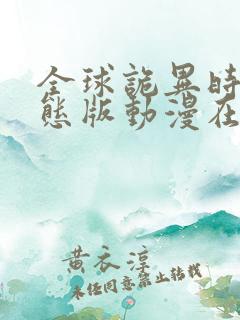 全球詭異時
態版動漫在
黄衣淳
未经同意禁止转载